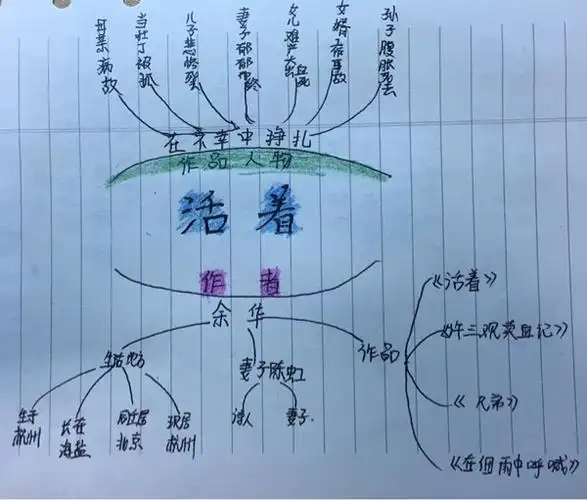 母亲病故
当壮丁被抓
儿子悲惨死
妻子郁郁而终
女儿难产大出血死
女婿在事故
孙子腹胀死去
在不幸中挣扎
作品人物
活着
作者
余华
生活地方
生于杭州
长在海盐
北京
现居杭州
妻子陈虹
诗人
妻子
作品
《活着》
《许三观卖血记》
《兄弟》
《在细雨中呼喊》